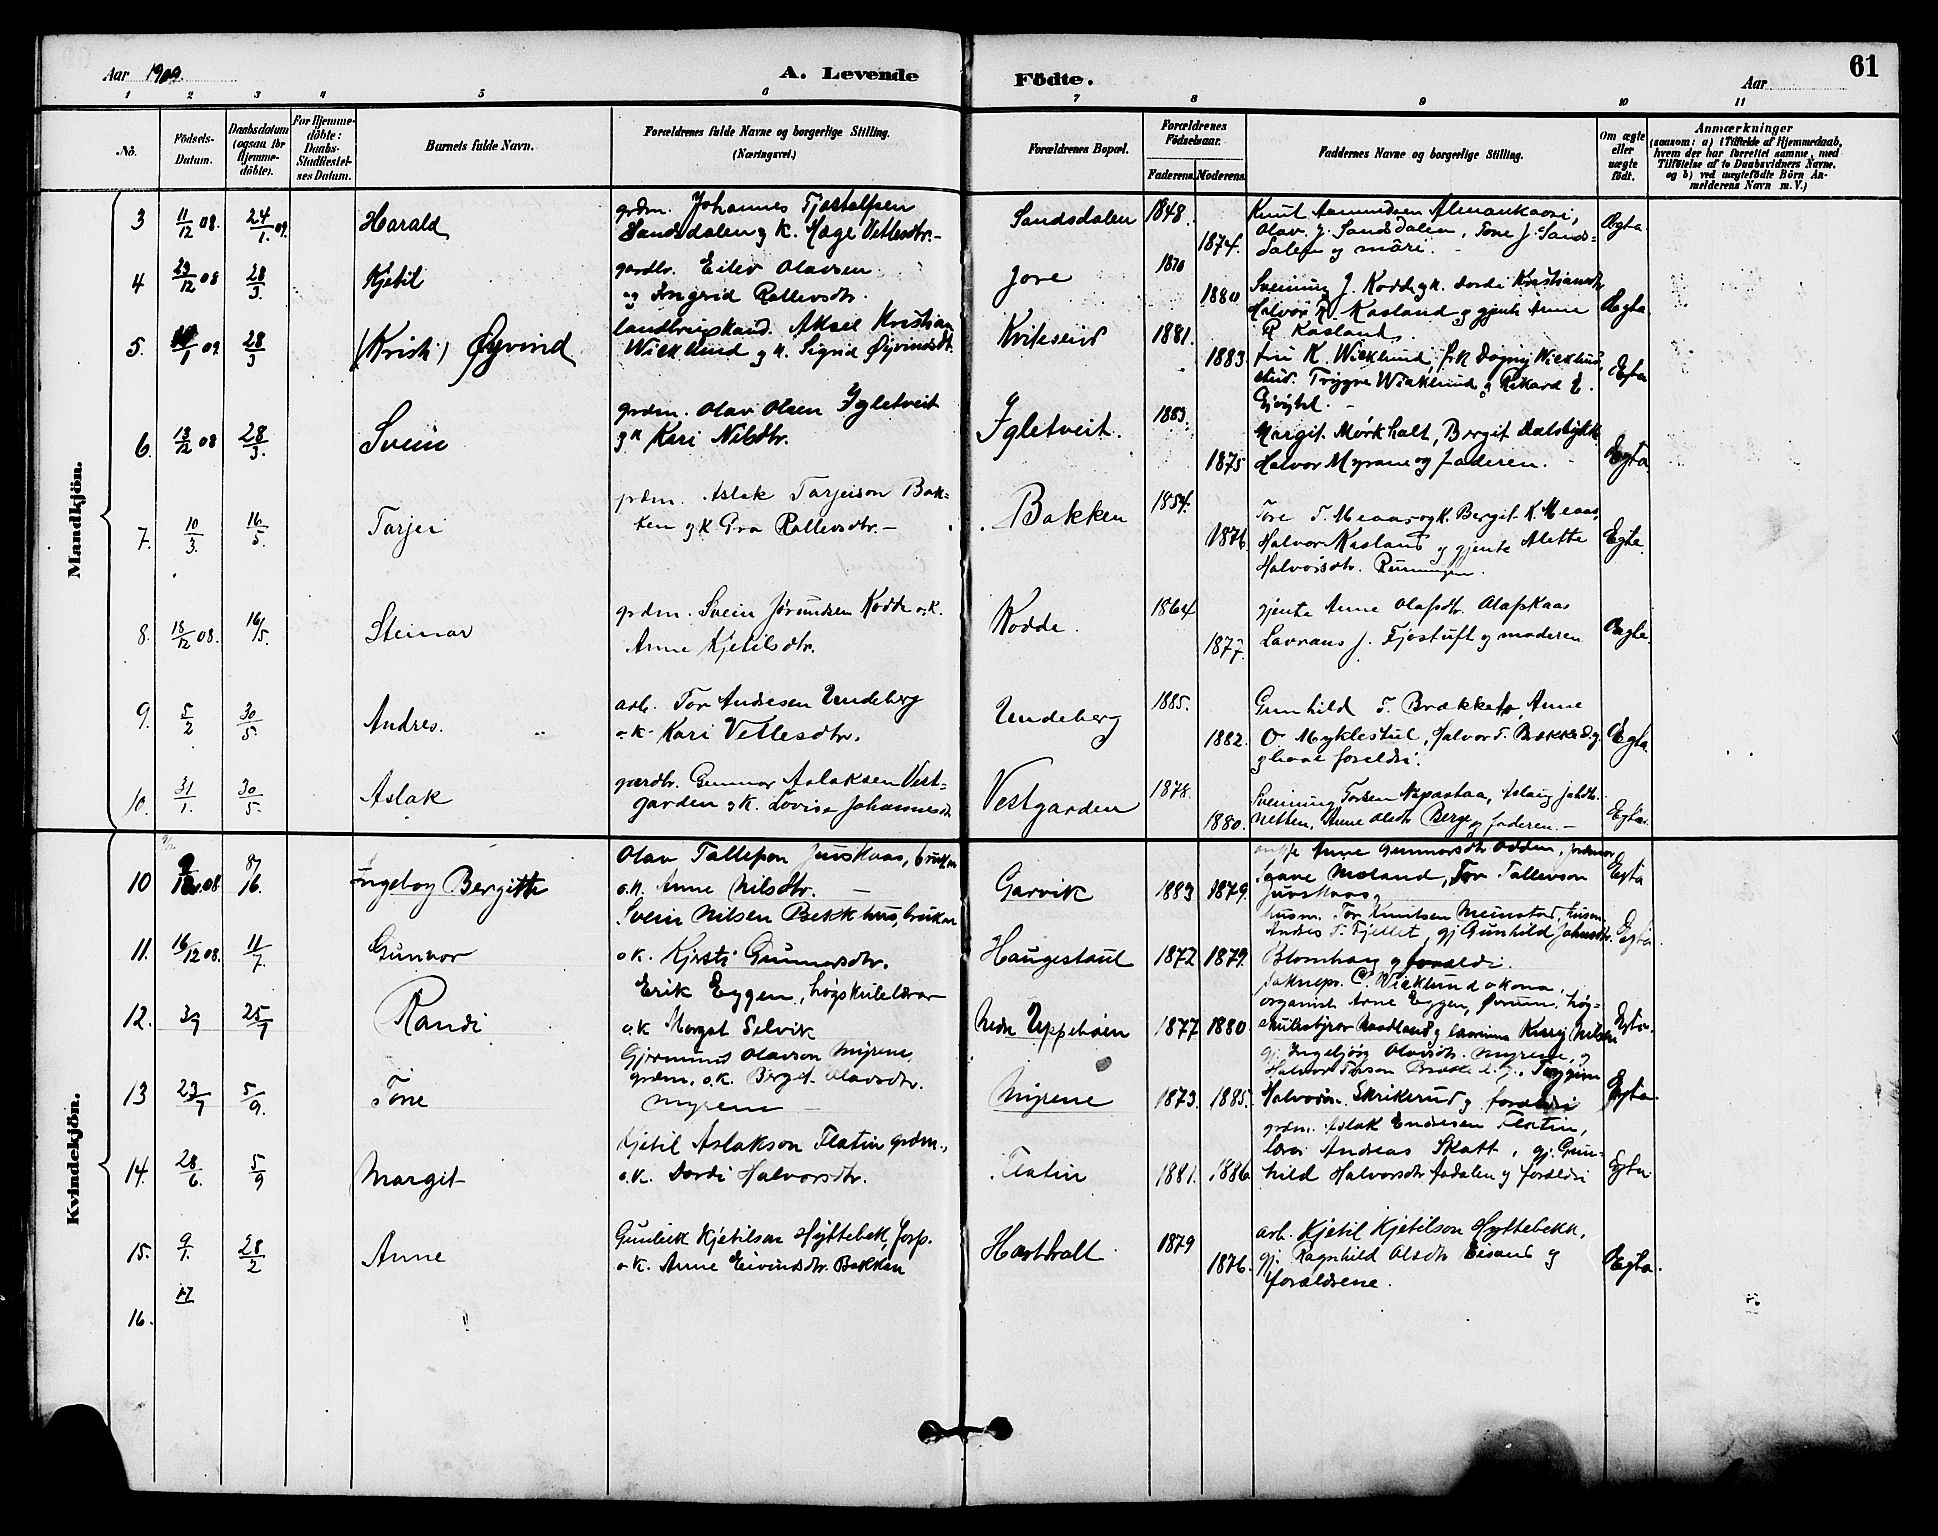 Aar 1909.
A. Levende
Födte.
Aar
61
1 2 3 4 5 6 7 8 9 10 11
No.
Födsels-Datum.
Daabsdatum (ogsaa for Hjemme-döbte).
For Hjemme-döbte: Daabs-Stadfæstel-ses Datum.
Barnets fulde Navn.
Forældrenes fulde Navne og borgerlige Stilling. (Næringsvei.)
Forældrenes Bopæl.
Forældrenes Födselsaar.
Faderens. Moderens.
Faddernes Navne og borgerlige Stilling.
Om ægte eller uægte födt.
Anmærkninger
(saasom: a) i Tilfælde af Hjemmedaab,
hvem der har forrettet samme, med
Tilföielse af to Daabsvidners Navne.
og b) ved uægtefödte Börn An-
melderens Navn m. V.)
Mandkjön.
3 11/12 08. 24/1. 09. Harald
grdm. Johannes Tjostolfsen
Sandsdalen og k. Hæge Vetlesdtr.
Sandsdalen 1848. 1874.
Knut Aamundsen
Olav J. Sandsdalen, Tone J. Sands-
dalen og móri.
Ægta
4 29/12 08 28/3. Kjetil
gardbr. Eilev Olavsen
og Ingrid Rollevsdtr.
Jore 1870 1880
Sveinung J. Kodde og k. Dordi Kristiansdtr
Halvor R. Kasland og gjente Anne
R Kasland.
Ægta
5. /1 09 28/3 (Krist.) Øyvind
landbrugskand. Aksel Kristian
Wicklund og k. Sigrid Øyvindsdt.
Kviteseid 1881. 1883
fru K. Wicklund, frk Dagny Wicklund,
stud. Trygve Wicklund og Rikard E.
Egta
6. 13/12 08 28/3. Svein
grdm. Olav Olsen Igletveit
og k Kari Nilsdtr.
Igletveit. 1883. 1875
Margit Mørkhalt, Bergit
Halvor Myrane og faderen.
Egta
7. 10/3. 16/5. Tarjei
grdm. Aslak Tarjeison Bak-
ken og k Gro Rollevsdtr.
Bakken 1854. 1876.
Tore T. Meaas og k. Bergit K. Meaas,
Halvor Kasland og gjente Alette
Halvorsdtr.
Egta.
8. 18/12 08. 16/5. Steinar
grdm. Svein Jørundsen Kodde o.k.
Anne Kjetilsdtr.
Kodde. 1864 1877.
gjente Anne Olafsdtr. Olafskaas
Lavrans J. Tjostuft og moderen
Ægta.
9. 5/2 30/5. Andres.
arb. Tor Andresen Undeberg
o. k. Kari Vetlesdtr.
Undeberg 1885. 1882.
Gunhild T. Brække, Anne
O. Myklestul, Halvor T. Brække og
baae foreldri.
Egta
10. 31/1. 30/5. Aslak
gardbr. Gunnar Aslaksen Vest-
garden og k. Lovise Johannesdt
Vestgarden 1878. 1880.
Sveinung Torsen Napastaa,
Netten, Anne Olsdtr Berge og faderen.
Egta.
Kvindekjön.
10 9/12 08 16. Ingebog Bergitte
Olav Tallefson Juvskaas, brukar
o.k. Anne Nilsdtr.
Garvik 1883 1879.
Anne Gunnarsdtr Odden,
Moland, Tor Tallevson
Juvskaas
Egta
11. 16/12 08. 11/7. Gunvor
Svein Nilsen Bekkhus, brukar
o.k. Kjersti Gunnarsdtr.
Haugestaul 1872 1879.
husm. Tor Knutsen Meinstad, husm
Andres T. Fjellet, gj Gunhild Johnsdtr.
Blomhaug og foreldri.
Egta
12. 3/7 25/7 Randi
Erik Eggen, høgskulelærar
o.k Margit Selvik
Nedr. Uppebøen 1877 1880
saknepr. C. Wicklund o kona,
organist Arne Eggen, høg-
skulestyrar
Egta.
13 23/7 5/9. Tone
Gjermund Olavson Myrene
grdm. o.k. Bergit Olavsdtr.
Myrene
Myrene 1873. 1885.
gj. Ingebjørg Olavsdtr. Myrene, og
Halvorsn. Skrikerud og foreldri
Egta.
14. 28/6. 5/9 Margit
Kjetil Aslakson Flatin grdm.,
o.k. Dordi Halvorsdtr.
Flatin 1881. 1886
grdm. Aslak Endresen Flatin,
lærar Andreas Skatt, gj. Gun-
hild Halvorsdtr Aadalen og foreldri
Egta
15. 9/1. 28/2 Anne
Gunleik Kjetilson Hyttebek, forp.
o.k. Anne Eivindsdtr. Bakken
1879 1876.
arb. Kjetil Kjetilson Hyttebekk,
gj. Ragnhild Olsdtr Eisand og
forældrene.
Egta.
16. 17